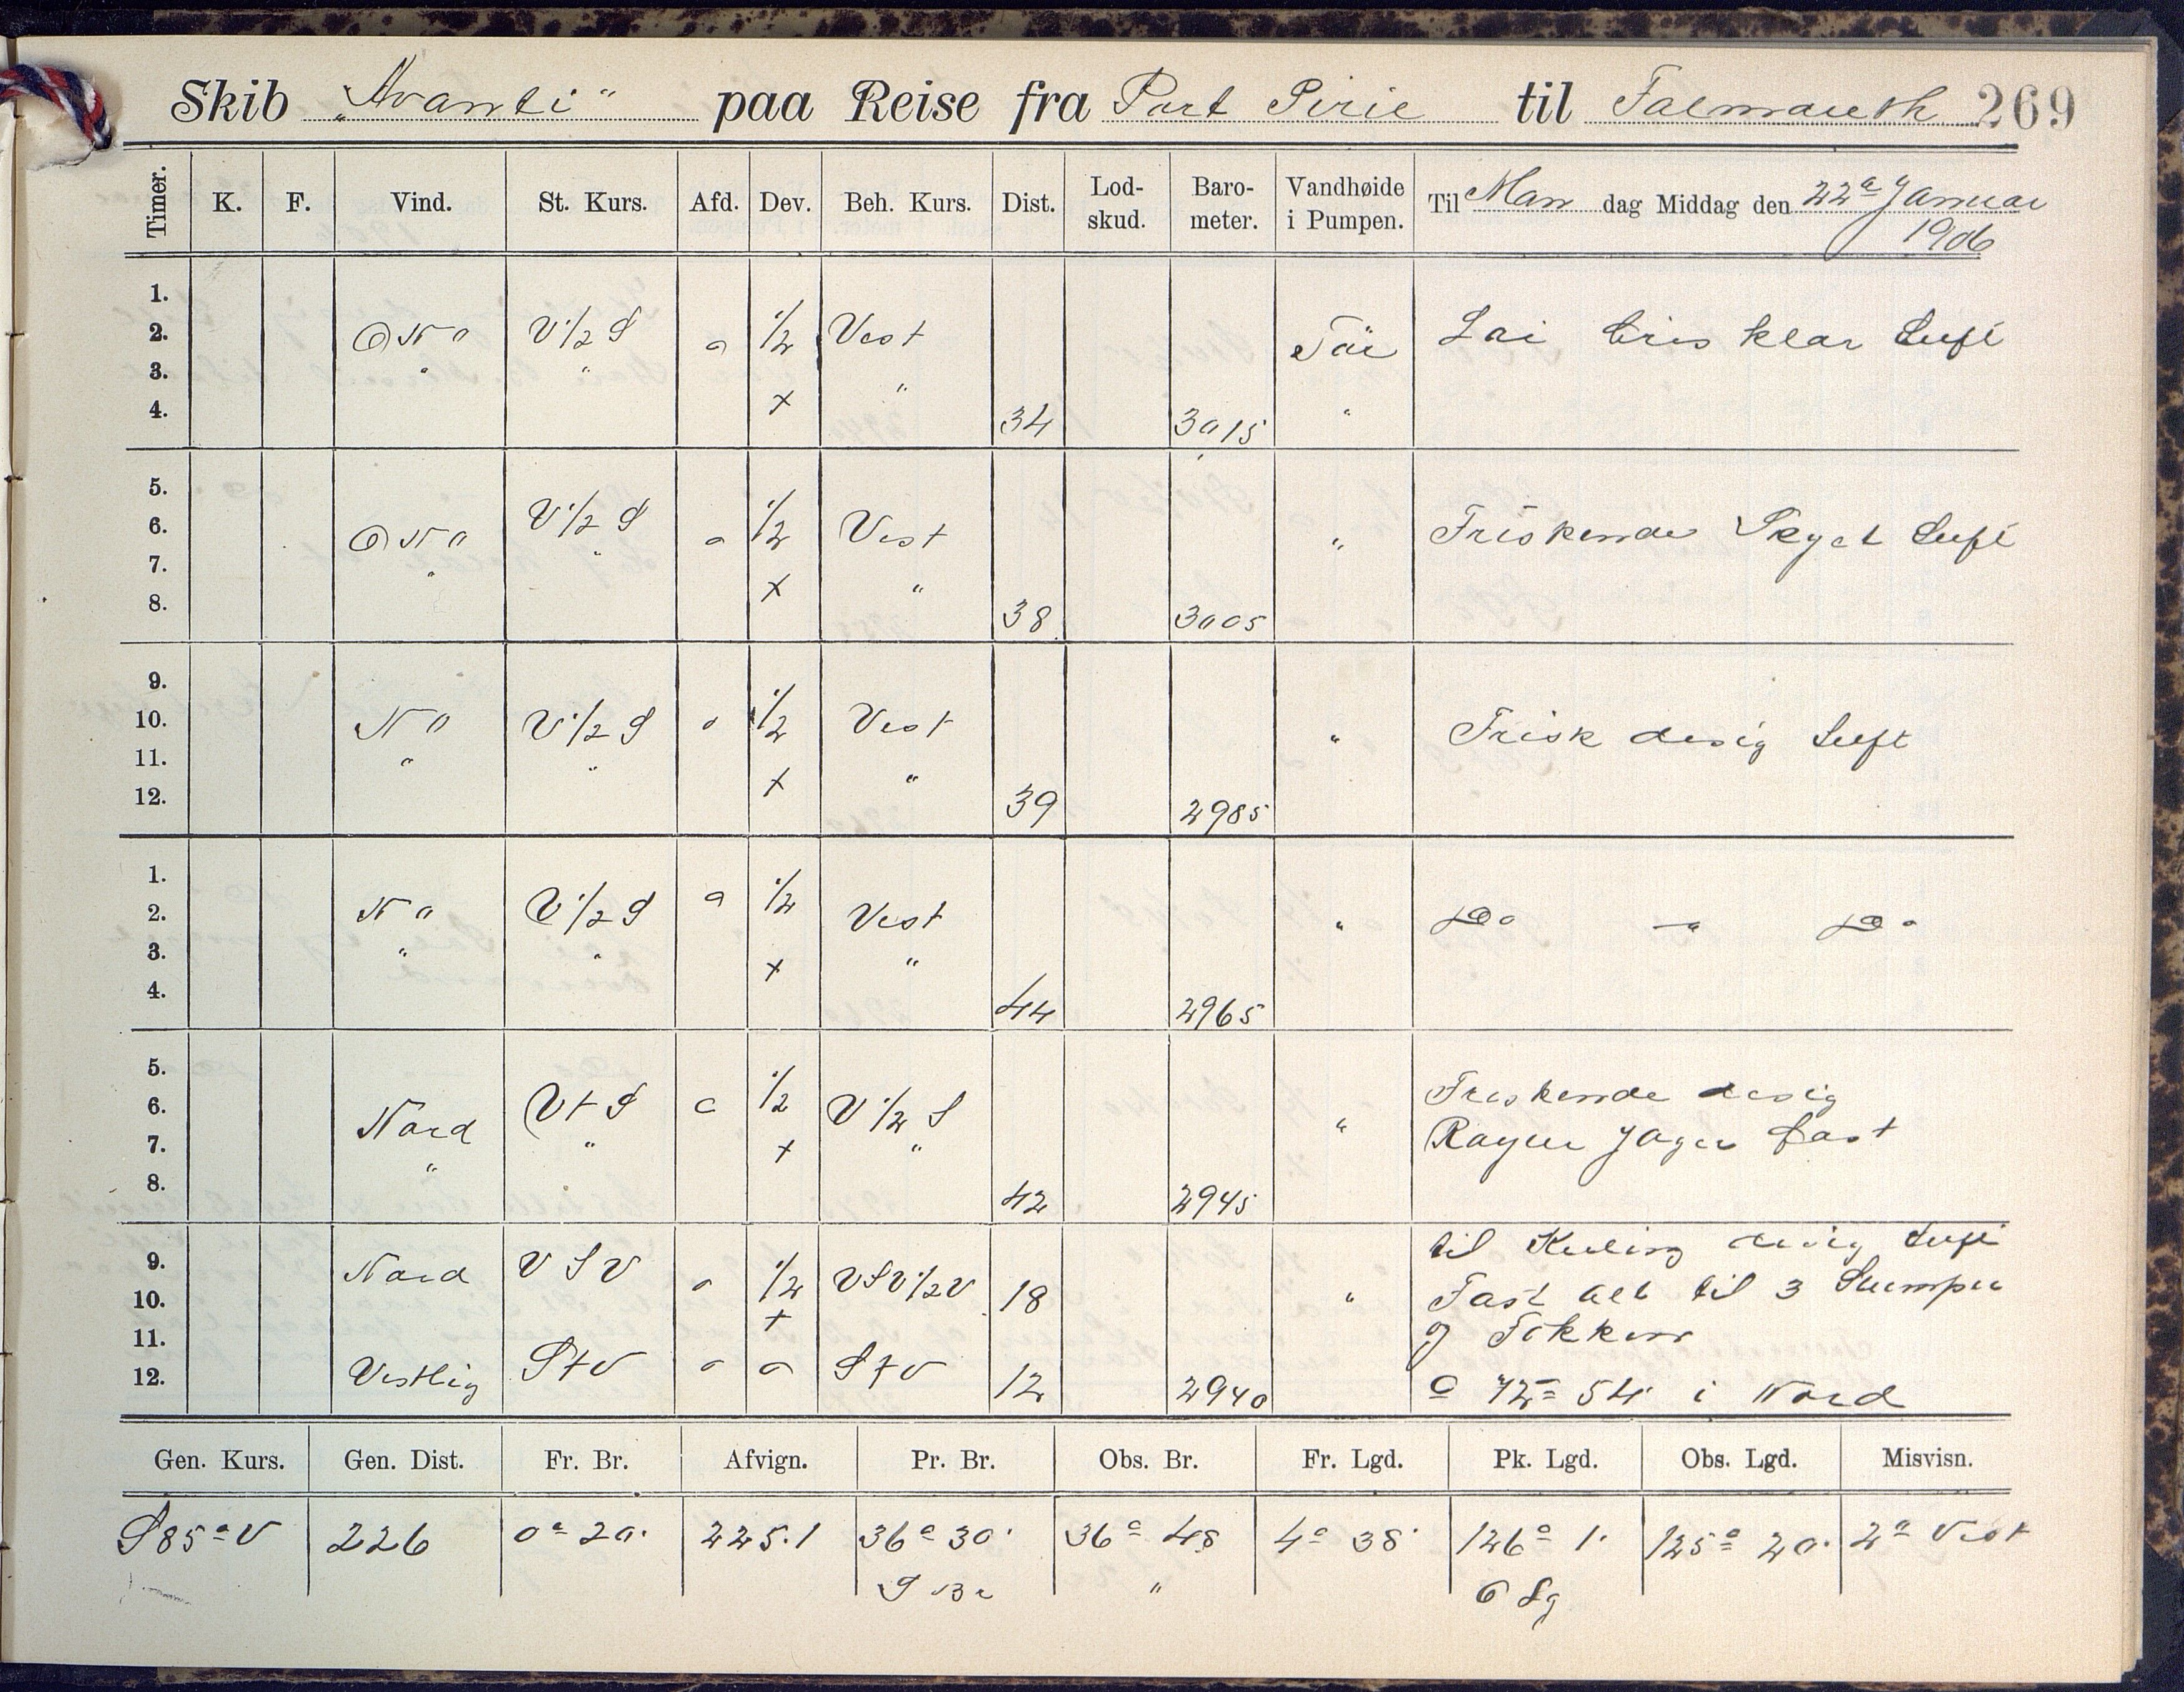 Skib „Avanti“ paa Reise fra Port Pirie til Falmouth 269
Timer. K. F. Vind. St. Kurs. Afd. Dev. Beh. Kurs. Dist. Lod-skud. Baro-meter. Vandhøide i Pumpen. Til Man dag Middag den 22de Januar
1906
1.
2. ONO V 1/2 S o 1/2 Vest Tör Lai bris klar Luft
3. " " "
4. + 34 3015 "
5.
6. ONO V 1/2 S o 1/2 Vest " Friskende Skyet Luft
7. " "
8. + " 38 3005
9.
10. NO V 1/2 S o 1/2 Vest " Frisk disig Luft
11. " " "
12. + 39 2985
1.
2. NO V 1/2 S o 1/2 Vest " Do — " Do
3. " " + "
4. 44 2965
5.
6. Nord VtS o 1/2 V 1/2 S Friskende disig
7. " " + " " Røyler Jager fast
8. 42 2945
9. Nord VSV o 1/2 VSV 1/2 V 18 " til Kuling disig Luft
10. + Fast alt til 3 Stumper
11. og Fokken
12. Vestlig StV o o StV 12 2940 72 = 54 i Nord
Gen. Kurs. Gen. Dist. Fr. Br. Afvign. Pr. Br. Obs. Br. Fr. Lgd. Pk. Lgd. Obs. Lgd. Misvisn.
S 85° V 226 0° 20' 225.1 36° 30' 36° 48 4° 38' 126° 1' 125° 20' 2° Vest
S Br " O Lg